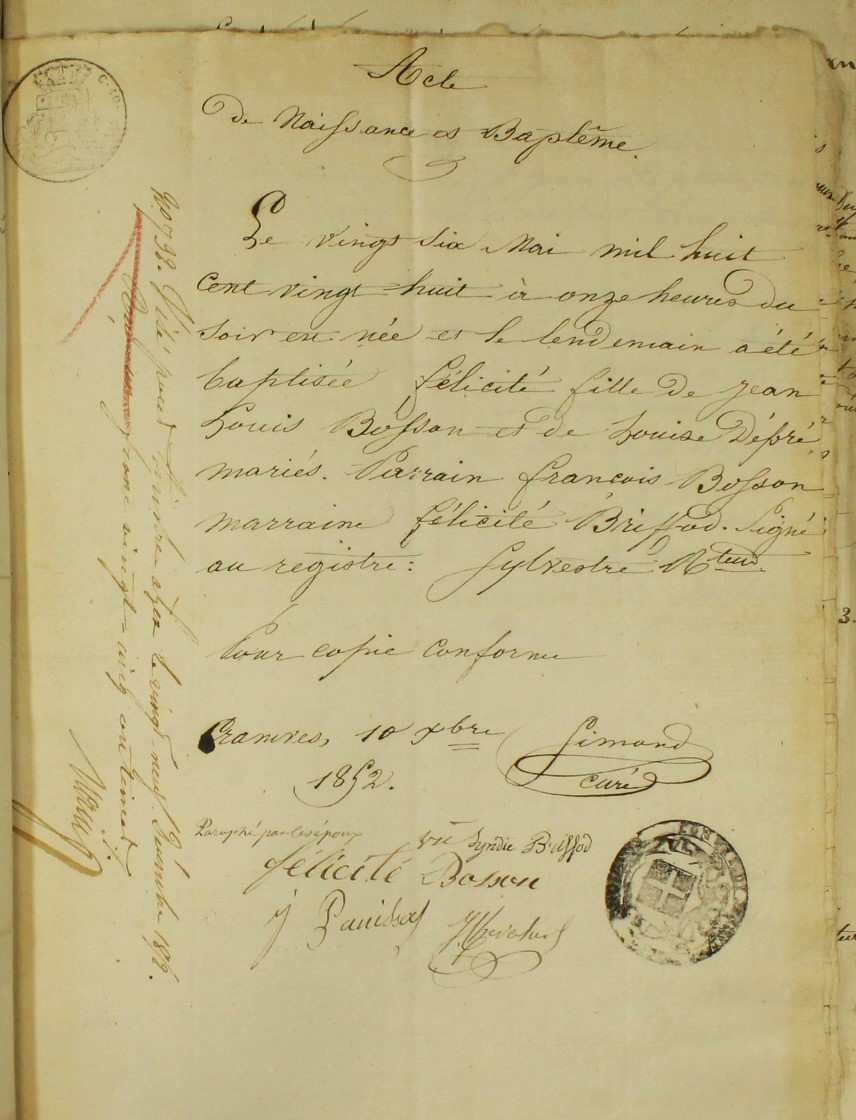 Acte
de Naissance et Baptême.
Le vingt six Mai mil huit
cent vingt-huit à onze heures du
soir est née et le lendemain a été
baptisée Félicité fille de Jean
Louis Bosson et de Louise Dépré
mariés. Parrain François Bosson
marraine Félicité Briffod. Signé
au registre: Sylvestre Rteur.
Pour copie conforme
10 Xbre
1852.
Simond
curé
Paraphé par les époux
Vu Syndic Briffod
félicité Bosson
J
N.o 738. Visé pour timbre le vingt-neuf
vingt-cinq centimes